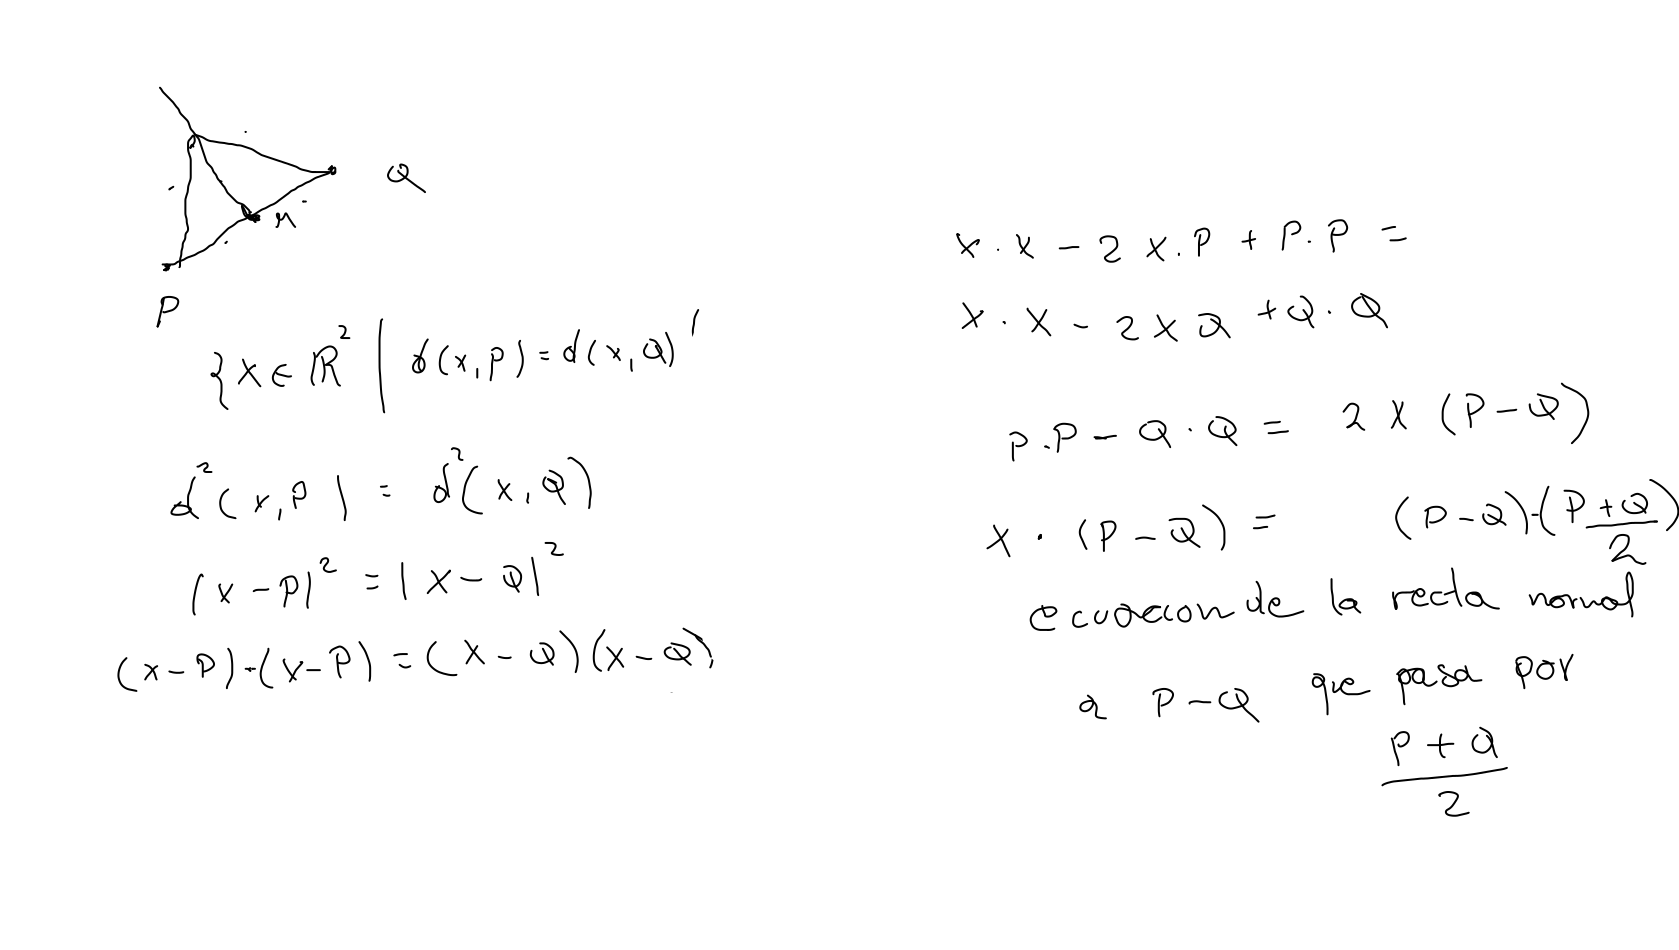 Q
M
P
{ x ∈ ℝ² | d(x, P) = d(x, Q) }
d²(x, P) = d²(x, Q)
|x - P|² = |x - Q|²
(x - P) · (x - P) = (x - Q)(x - Q)
x · x - 2 x . P + P . P =
x · x - 2 x Q + Q · Q
P . P - Q · Q = 2 x (P - Q)
x · (P - Q) = (P - Q) · (P + Q)/2
ecuacion de la recta normal
a P - Q que pasa por
P + Q
2